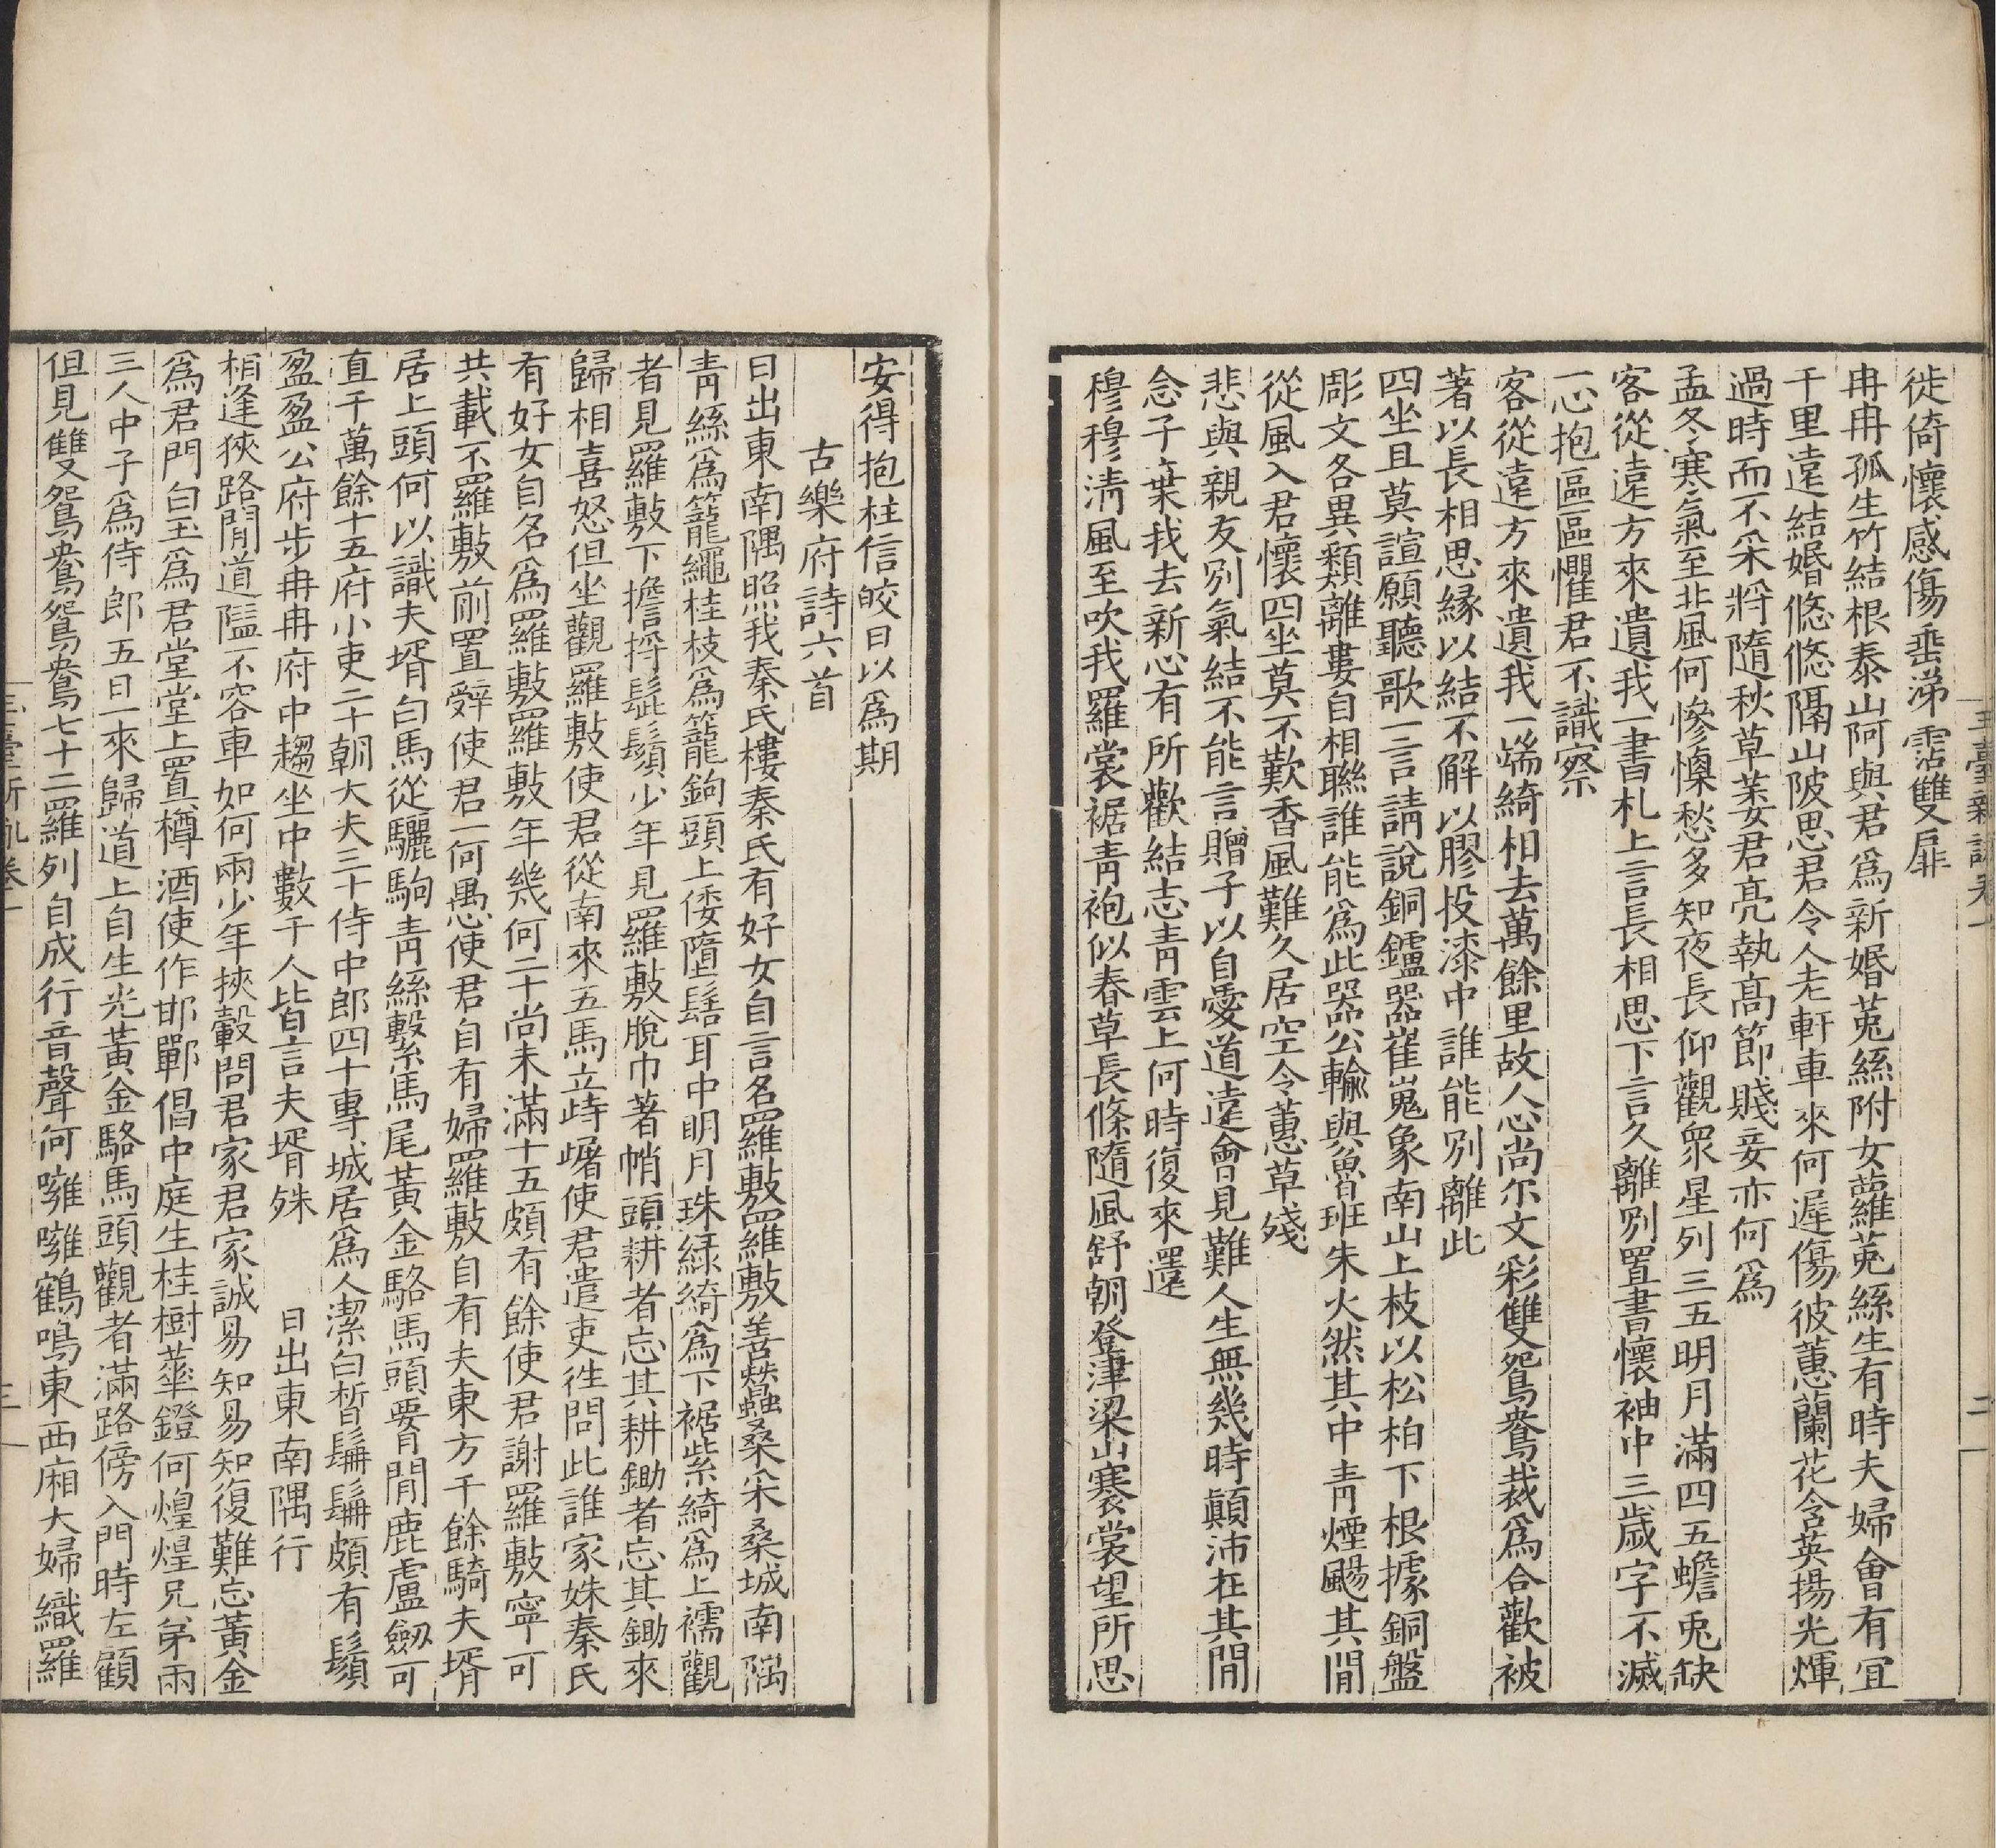 徙倚懷感傷垂涕霑雙扉
冉冉孤生竹結根泰山阿與君爲新婚菟絲附女蘿菟絲生有時夫婦會有宜
千里遠結婚悠悠隔山陂思君令人老軒車來何遲傷彼蕙蘭花含英揚光煇
過時而不采將隨秋草萎君亮執高節賤妾亦何爲
孟冬寒氣至北風何慘懍愁多知夜長仰觀衆星列三五明月滿四五蟾兎缺
客從遠方來遺我一書札上言長相思下言久離别置書懷袖中三歲字不滅
一心抱區區懼君不識察
客從遠方來遺我一端綺相去萬餘里故人心尚尔文彩雙鴛鴦裁爲合歡被
著以長相思緣以結不解以膠投漆中誰能别離此
四坐且莫諠願聽歌一言請說銅鑪器崔嵬象南山上枝以松柏下根據銅盤
彫文各異類離婁自相聯誰能爲此器公輸與魯班朱火然其中青煙颺其間
從風入君懷四坐莫不歎香風難久居空令蕙草殘
悲與親友别氣結不能言贈子以自愛道遠會見難人生無幾時顛沛在其間
念子棄我去新心有所歡結志青雲上何時復來還
穆穆清風至吹我羅裳裾青袍似春草長條隨風舒朝登津梁山褰裳望所思
玉臺新詠卷一
二
安得抱柱信皎日以爲期
古樂府詩六首
日出東南隅照我秦氏樓秦氏有好女自言名羅敷羅敷善蠶桑采桑城南隅
青絲爲籠繩桂枝爲籠鉤頭上倭墮髻耳中明月珠緑綺爲下裾紫綺爲上襦觀
者見羅敷下擔捋髭鬚少年見羅敷脫巾著帩頭耕者忘其耕鋤者忘其鋤來
歸相喜怒但坐觀羅敷使君從南來五馬立踟躕使君遣吏徃問此誰家姝秦氏
有好女自名爲羅敷羅敷年幾何二十尚未滿十五頗有餘使君謝羅敷寧可
共載不羅敷前置辤使君一何愚使君自有婦羅敷自有夫東方千餘騎夫壻
居上頭何以識夫壻白馬從驪駒青絲繫馬尾黃金駱馬頭要間鹿盧劒可
直千萬餘十五府小吏二十朝大夫三十侍中郎四十專城居爲人潔白晳鬑鬑頗有鬚
盈盈公府步冉冉府中趨坐中數千人皆言夫壻殊 日出東南隅行
相逢狹路間道隘不容車如何兩少年挾轂問君家君家誠易知易知復難忘黃金
爲君門白玉爲君堂堂上置樽酒使作邯鄲倡中庭生桂樹華鐙何煌煌兄弟兩
三人中子爲侍郎五日一來歸道上自生光黃金駱馬頭觀者滿路傍入門時左顧
但見雙鴛鴦鴛鴦七十二羅列自成行音聲何噰噰鶴鳴東西廂大婦織羅
三